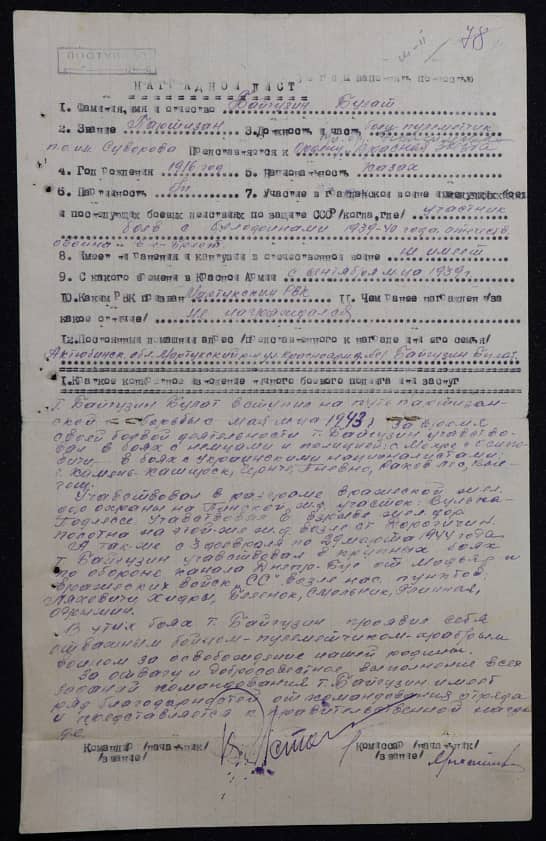 III-II
78
ПОСТУПИЛ
НАГРАДНОЙ ЛИСТ
1. Фамилия, имя и отчество Байгузин Булат
2. Звание Партизан 3. Должность и часть боец-пулеметчик
п.о. им. Суворова Представляется к Ордену "Красная Звезда"
4. Год рождения 1916 год 5. Национальность Казах
6. Партийность б/п 7. Участие в гражданской войне
и последующих боевых действиях по защите СССР /когда, где/ участник
боев с белофинами 1939-40 года, отечеств.
война
8. Имеет ли ранения и контузии в отечественной войне не имеет
9. С какого времени в Красной Армии с сентября м-ца 1939 г
10. Каким РВК призван Мартукским РВК 11. Чем ранее награжден /за
какое отличие/ не награждался
12. Постоянный домашний адрес /представленного к награде или его семьи/
Актюбинск. обл. Мартукский р-н Байгузин Булат.
1. Краткое конкретное изложение личного боевого подвига или заслуг
Т. Байгузин Булат вступил на путь партизан-
ской борьбы с мая м-ца 1943 г. За время
своей боевой деятельности т. Байгузин участво-
вал в боях с немцами и полицией: с
в боях с Украинскими националистами:
г. Камень-Каширск,
Участвовал в разгроме вражеской жел.
дор. охраны на Пинской ж.д. участок:
Подлессе. Участвовал в взрыве жел. дор.
полотна на этой же ж.д. возле ст.
А так-же с 3 февраля по 22 марта 1944 года
т. Байгузин участвовал в крупных боях
по обороне канала Днепр-Буг от мадьяр и
вражеских войск "СС" возле нас. пунктов:
Ляховичи
В этих боях т. Байгузин проявил себя
отважным бойцом-пулеметчиком-храбрым
воином за освобождение нашей родины.
За отвагу и добросовестное, выполнение всех
заданий командования т. Байгузин имеет
ряд благодарностей от командования отряда
и представляется к правительственной награ-
де.
Командир /начальник/
/звание/
Комиссар /начальник/
/звание/